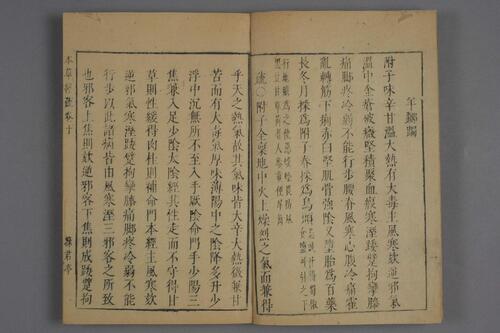 羊躑躅
附子味辛甘溫大熱有大毒主風寒欬逆邪氣
溫中金瘡破癥堅積聚血瘕寒溼踒躄拘攣膝
痛腳疼冷弱不能行步腰脊風寒心腹冷痛霍
亂轉筋下痢赤白堅肌骨強陰又墮胎為百藥
長冬月採為附子春採為烏頭
疏○附子全稟地中火土燥烈之氣而兼得
乎天之熱氣故其氣味皆大辛大熱微兼甘
苦而有大毒氣厚味薄陽中之陰降多升少
浮中沉無所不至入手厥陰命門手少陽三
焦兼入足少陰太陰經其性走而不守得甘
草則性緩得肉桂則補命門本經主風寒欬
逆邪氣寒溼踒躄拘攣膝痛腳疼冷弱不能
行步以此諸病皆由風寒溼三邪客之所致
也邪客上焦則欬逆邪客下焦則成踒躄拘
本草經疏卷十
綠君亭